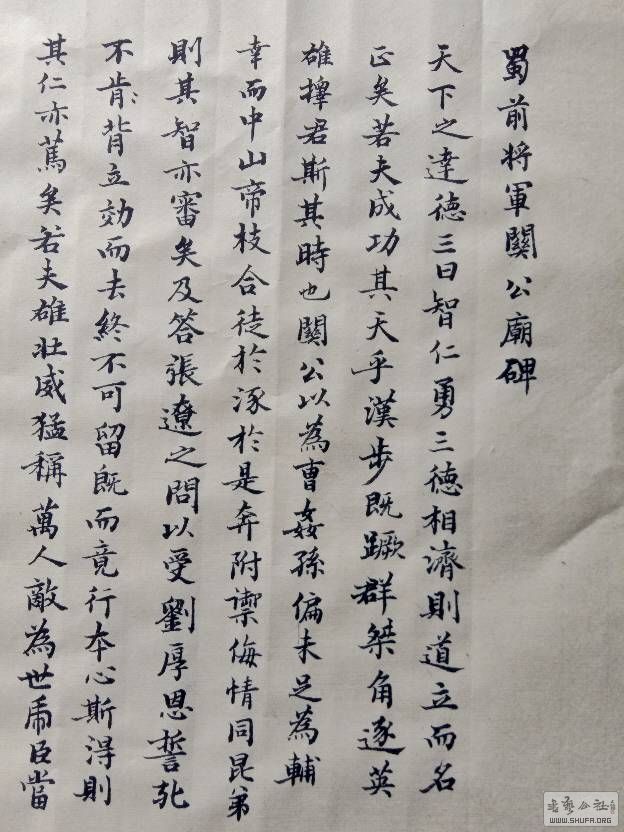 蜀前将軍關公廟碑
天下之達德三曰智仁勇三德相濟則道立而名
正矣若夫成功其天乎漢步既蹶群桀角逐英
雄擇君斯其時也關公以為曹姦孫偏未足為輔
幸而中山帝枝合徒於涿於是奔附禦侮情同昆弟
則其智亦審矣及答張遼之問以受劉厚恩誓死
不背立効而去終不可留既而竟行本心斯得則
其仁亦篤矣若夫雄壯威猛稱萬人敵為世虎臣當
WWW.SHUFA.ORG